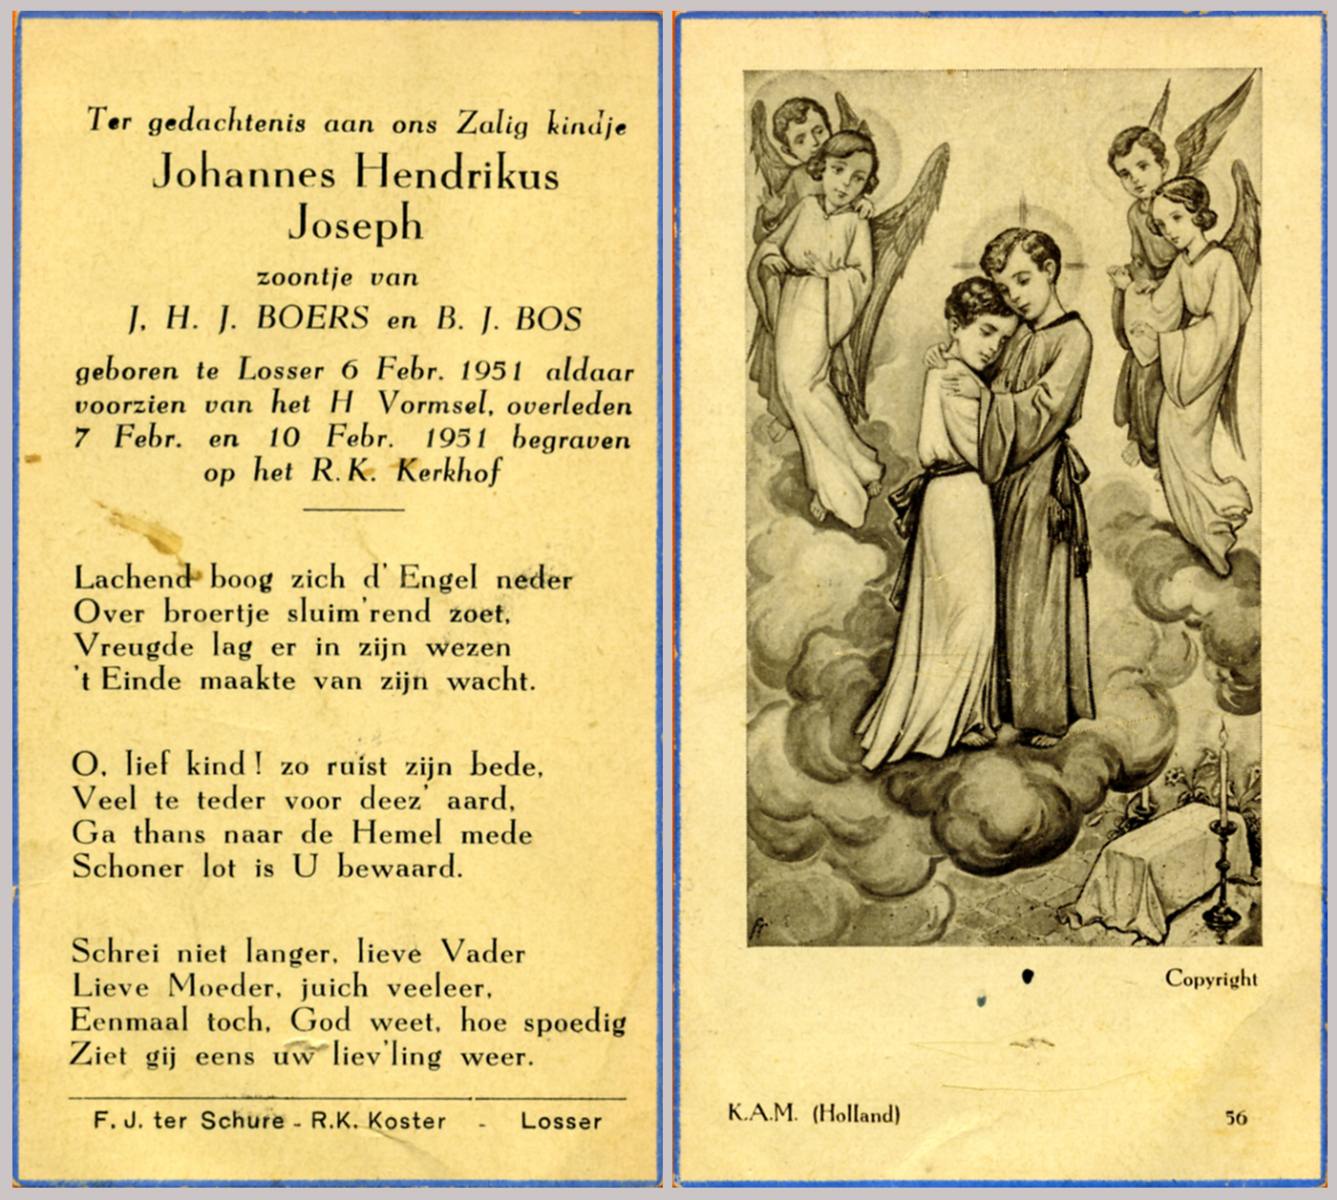 Ter gedachtenis aan ons Zalig kindje
Johannes Hendrikus
Joseph
zoontje van
J. H. J. BOERS en B. J. BOS
geboren te Losser 6 Febr. 1951 aldaar
voorzien van het H Vormsel, overleden
7 Febr. en 10 Febr. 1951 begraven
op het R.K. Kerkhof
Lachend boog zich d' Engel neder
Over broertje sluim'rend zoet,
Vreugde lag er in zijn wezen
't Einde maakte van zijn wacht.
O, lief kind! zo ruist zijn bede,
Veel te teder voor deez' aard,
Ga thans naar de Hemel mede
Schoner lot is U bewaard.
Schrei niet langer, lieve Vader
Lieve Moeder, juich veeleer,
Eenmaal toch, God weet, hoe spoedig
Ziet gij eens uw liev'ling weer.
F. J. ter Schure - R.K. Koster - Losser
Copyright
K.A.M. (Holland)
56